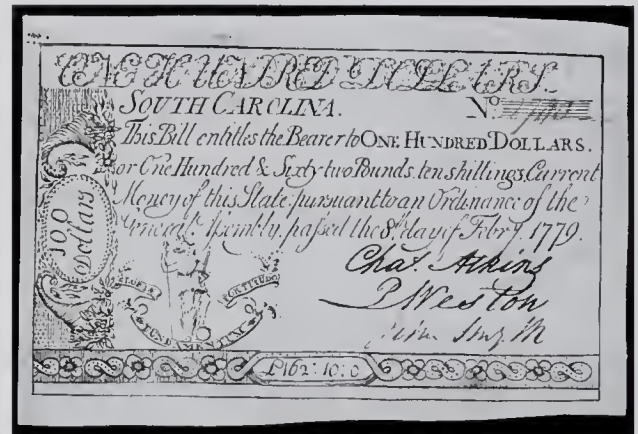 ONE HUNDRED DOLLARS.
SOUTH CAROLINA. No.
This Bill entitles the Bearer to ONE HUNDRED DOLLARS.
or One Hundred & Sixty two Pounds. ten shillings, Current
Money of this State. pursuant to an Ordinance of the
General Assembly. passed the 8th. day of Febry. 1779.
100
Dollars
FORTITUDO
Chas. Atkins
P Weston
£162: 10: 0